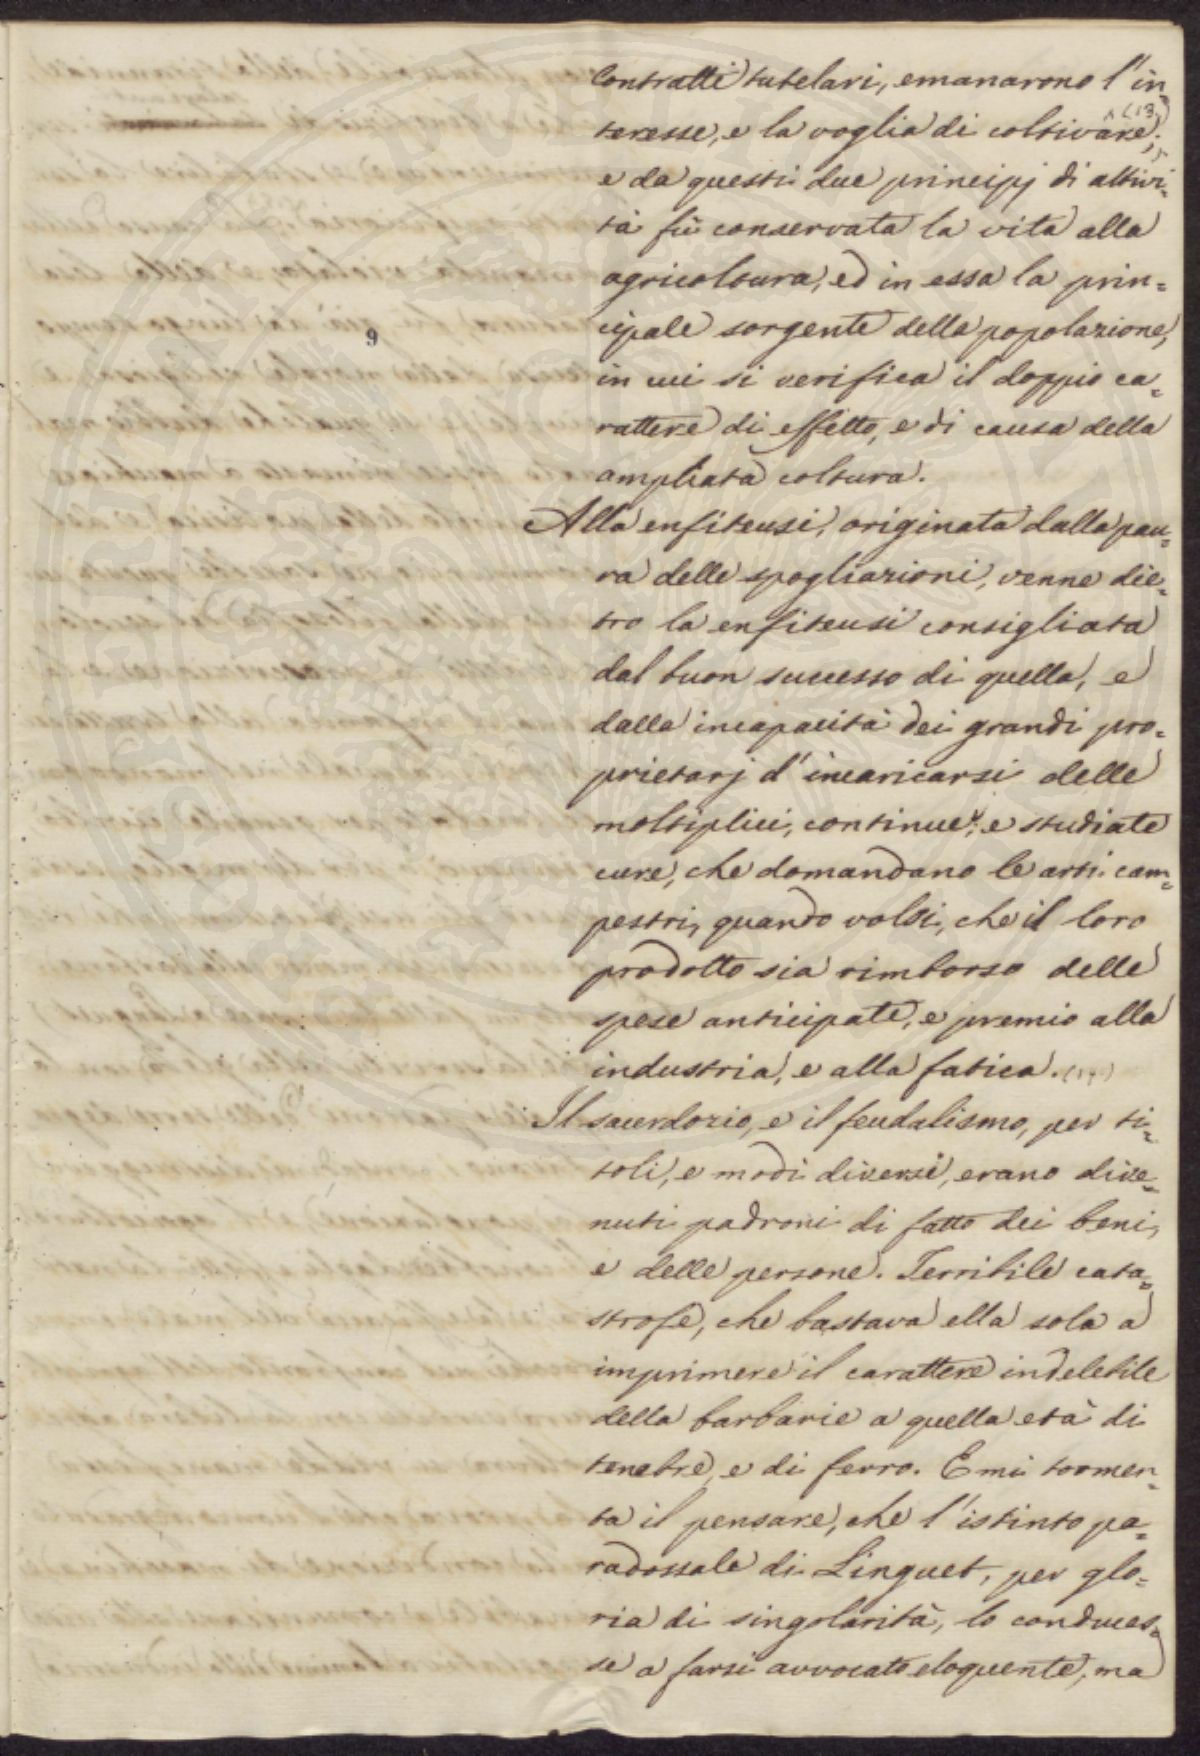 contratti tutelari, emanarono l'in=
teresse, e la voglia di coltivare; (13)
e da questi due principj di attivi=
tà fù conservata la vita alla
agricoltura, ed in essa la prin=
cipale sorgente della popolazione,
9
in cui si verifica il doppio ca=
rattere di effetto, e di causa della
ampliata coltura.
Alla enfiteusi, originata dalla pau=
ra delle spogliazioni, venne die=
tro la enfiteusi consigliata
dal buon successo di quella, e
dalla incapacità dei grandi pro=
prietarj d'incaricarsi delle
moltiplici, continue, e studiate
cure, che domandano le arti cam=
pestri, quando volsi, che il loro
prodotto sia rimborso delle
spese anticipate, e premio alla
industria, e alla fatica. (14)
Il sacerdozio, e il feudalismo, per ti=
toli, e modi diversi, erano dive=
nuti padroni di fatto dei beni,
e delle persone. Terribile cata=
strofe, che bastava ella sola a
imprimere il carattere indelebile
della barbarie a quella età di
tenebre, e di ferro. E mi tormen=
ta il pensare, che l'istinto pa=
radossale di Linguet, per glo=
ria di singolarità, lo conduces=
se a farsi avvocato eloquente, ma